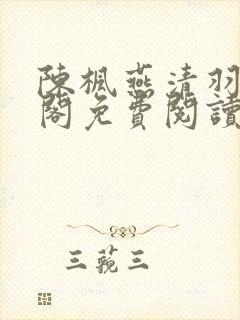 陳楓燕清羽
閣免費閱讀
三蒓三